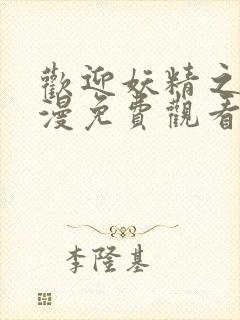 歡迎妖精之
漫免費觀看
李隆基